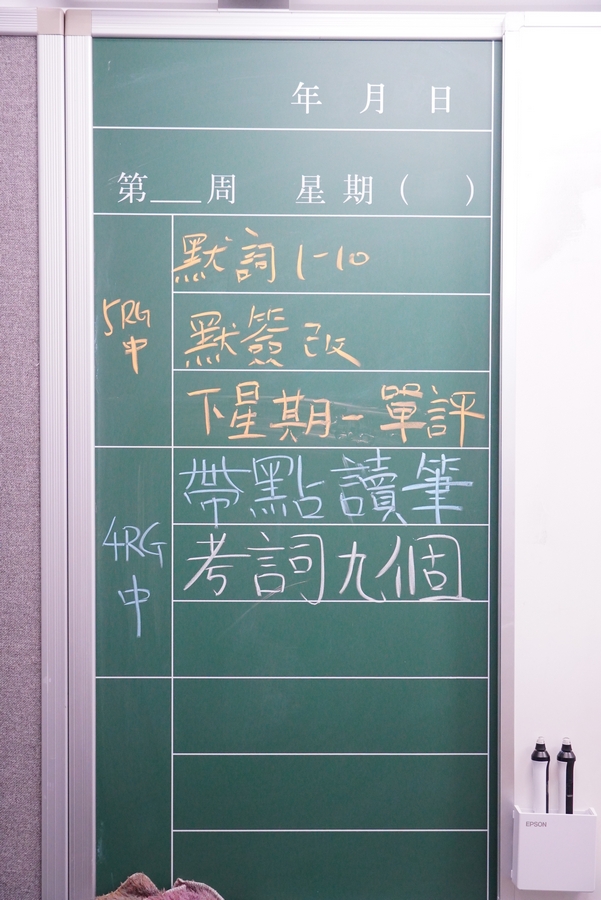 年 月 日
第___周 星期( )
5RG
中
默詞 1-10
默簽改
下星期一單評
4RG
中
帶點讀筆
考詞九個
EPSON